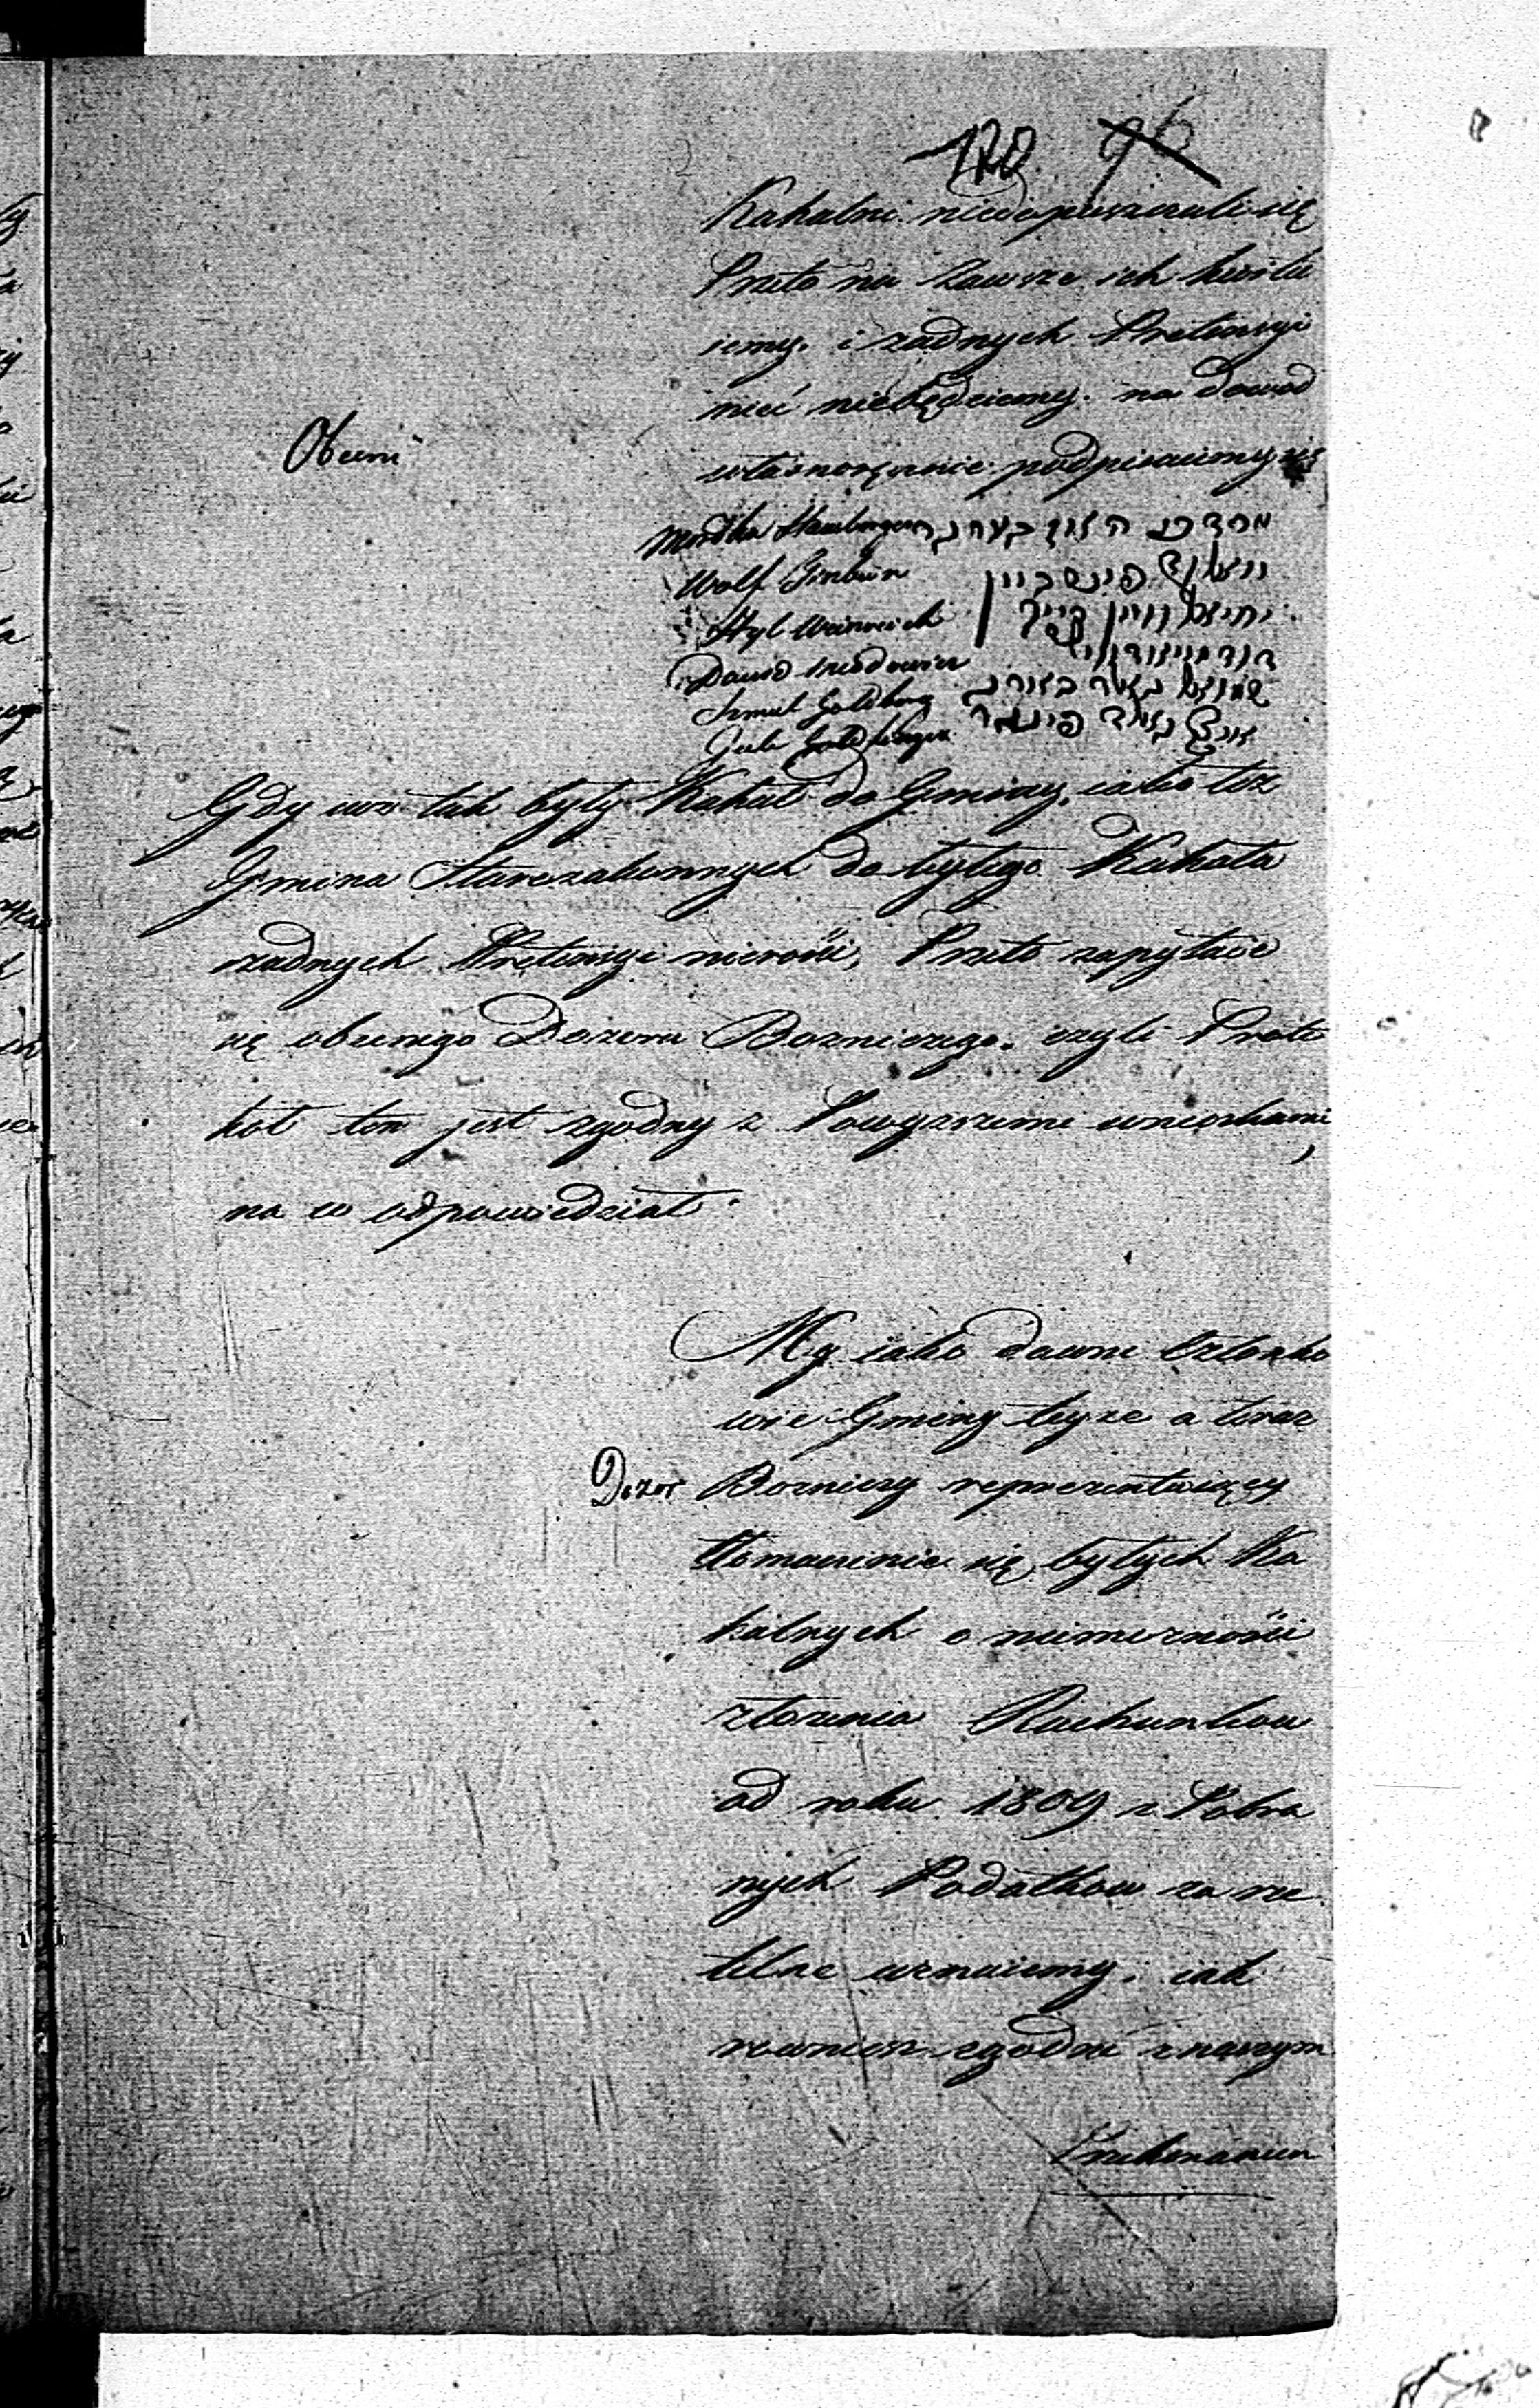 120. 96
Kahalni niedopuszczali się
Przeto na zawsze ich kwitu
iemy, i żadnych Pretensyi
mieć niebędziemy. na dowod
własnoręcznie podpisuiemy się
Obecni
Modka Hamburger
Wolf Finbin
Hyl Weinreich
Dawid Miodowicz
Szmul Goldberg
Goldfinger
Gdy wiec tak były Kahał do Gminy, iako też
Gmina Starozakonnych do byłego Kahału
żadnych Pretensyi nierości, Przeto zapytano
się obecnego Dozoru Bozniczego. czyli Proto
kół ten jest zgodny z Powyzszemi wnioskami,
na co odpowiedział.
My iako dawni Członko
wie Gminy teyże a teraz
Dozor Bozniczy reprezentuiący
tłomaczenie się byłych Ka
halnych o niemożności
złożenia Rachunkow
od roku 1809 z Pobra
nych Podatkow za rze
telne uznaiemy, iak
rowniesz zgodni z naszym
Przekonanien